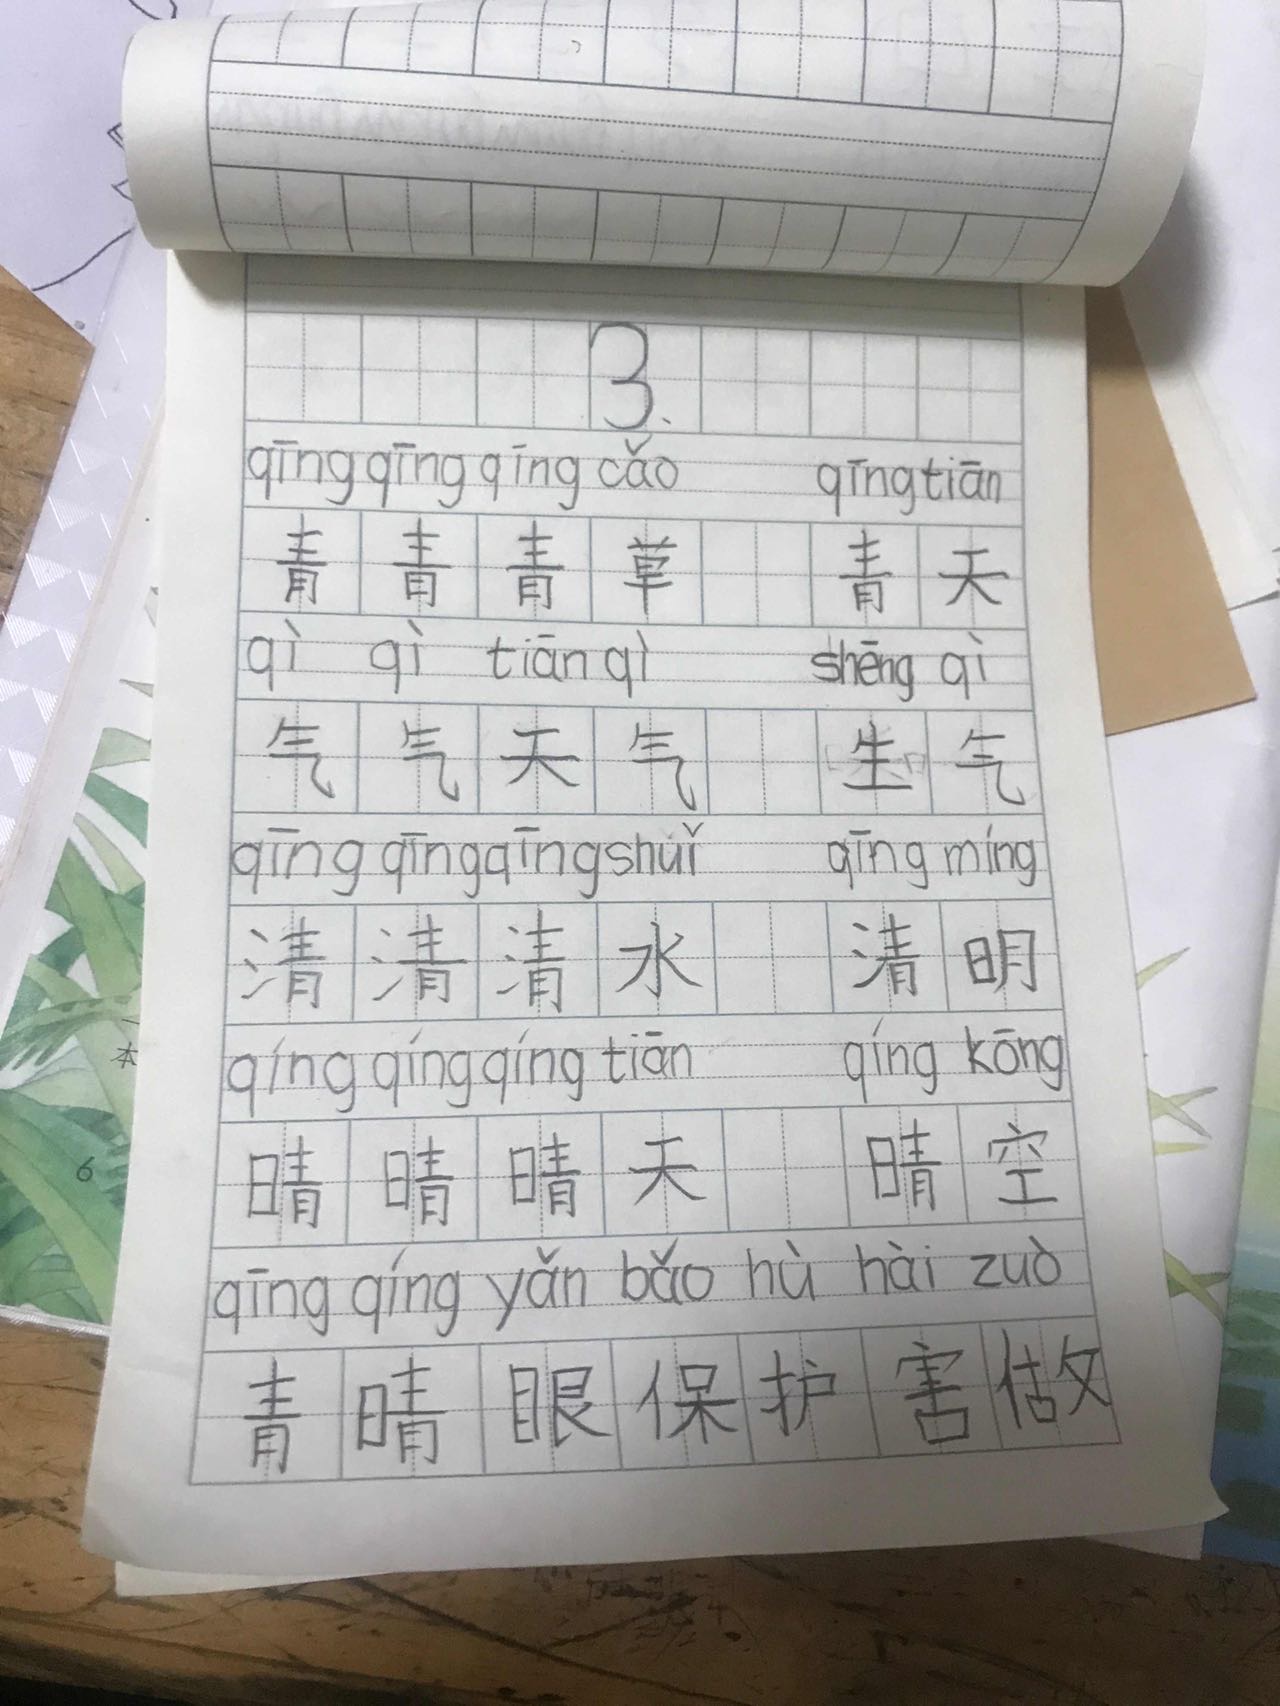 3.
qīng qīng qīng cǎo qīng tiān
青 青 青 草 青 天
qì qì tiān qì shēng qì
气 气 天 气 生 气
qīng qīng qīng shuǐ qīng míng
清 清 清 水 清 明
qíng qíng qíng tiān qíng kōng
晴 晴 晴 天 晴 空
qīng qíng yǎn bǎo hù hài zuò
青 晴 眼 保 护 害 做
本
6